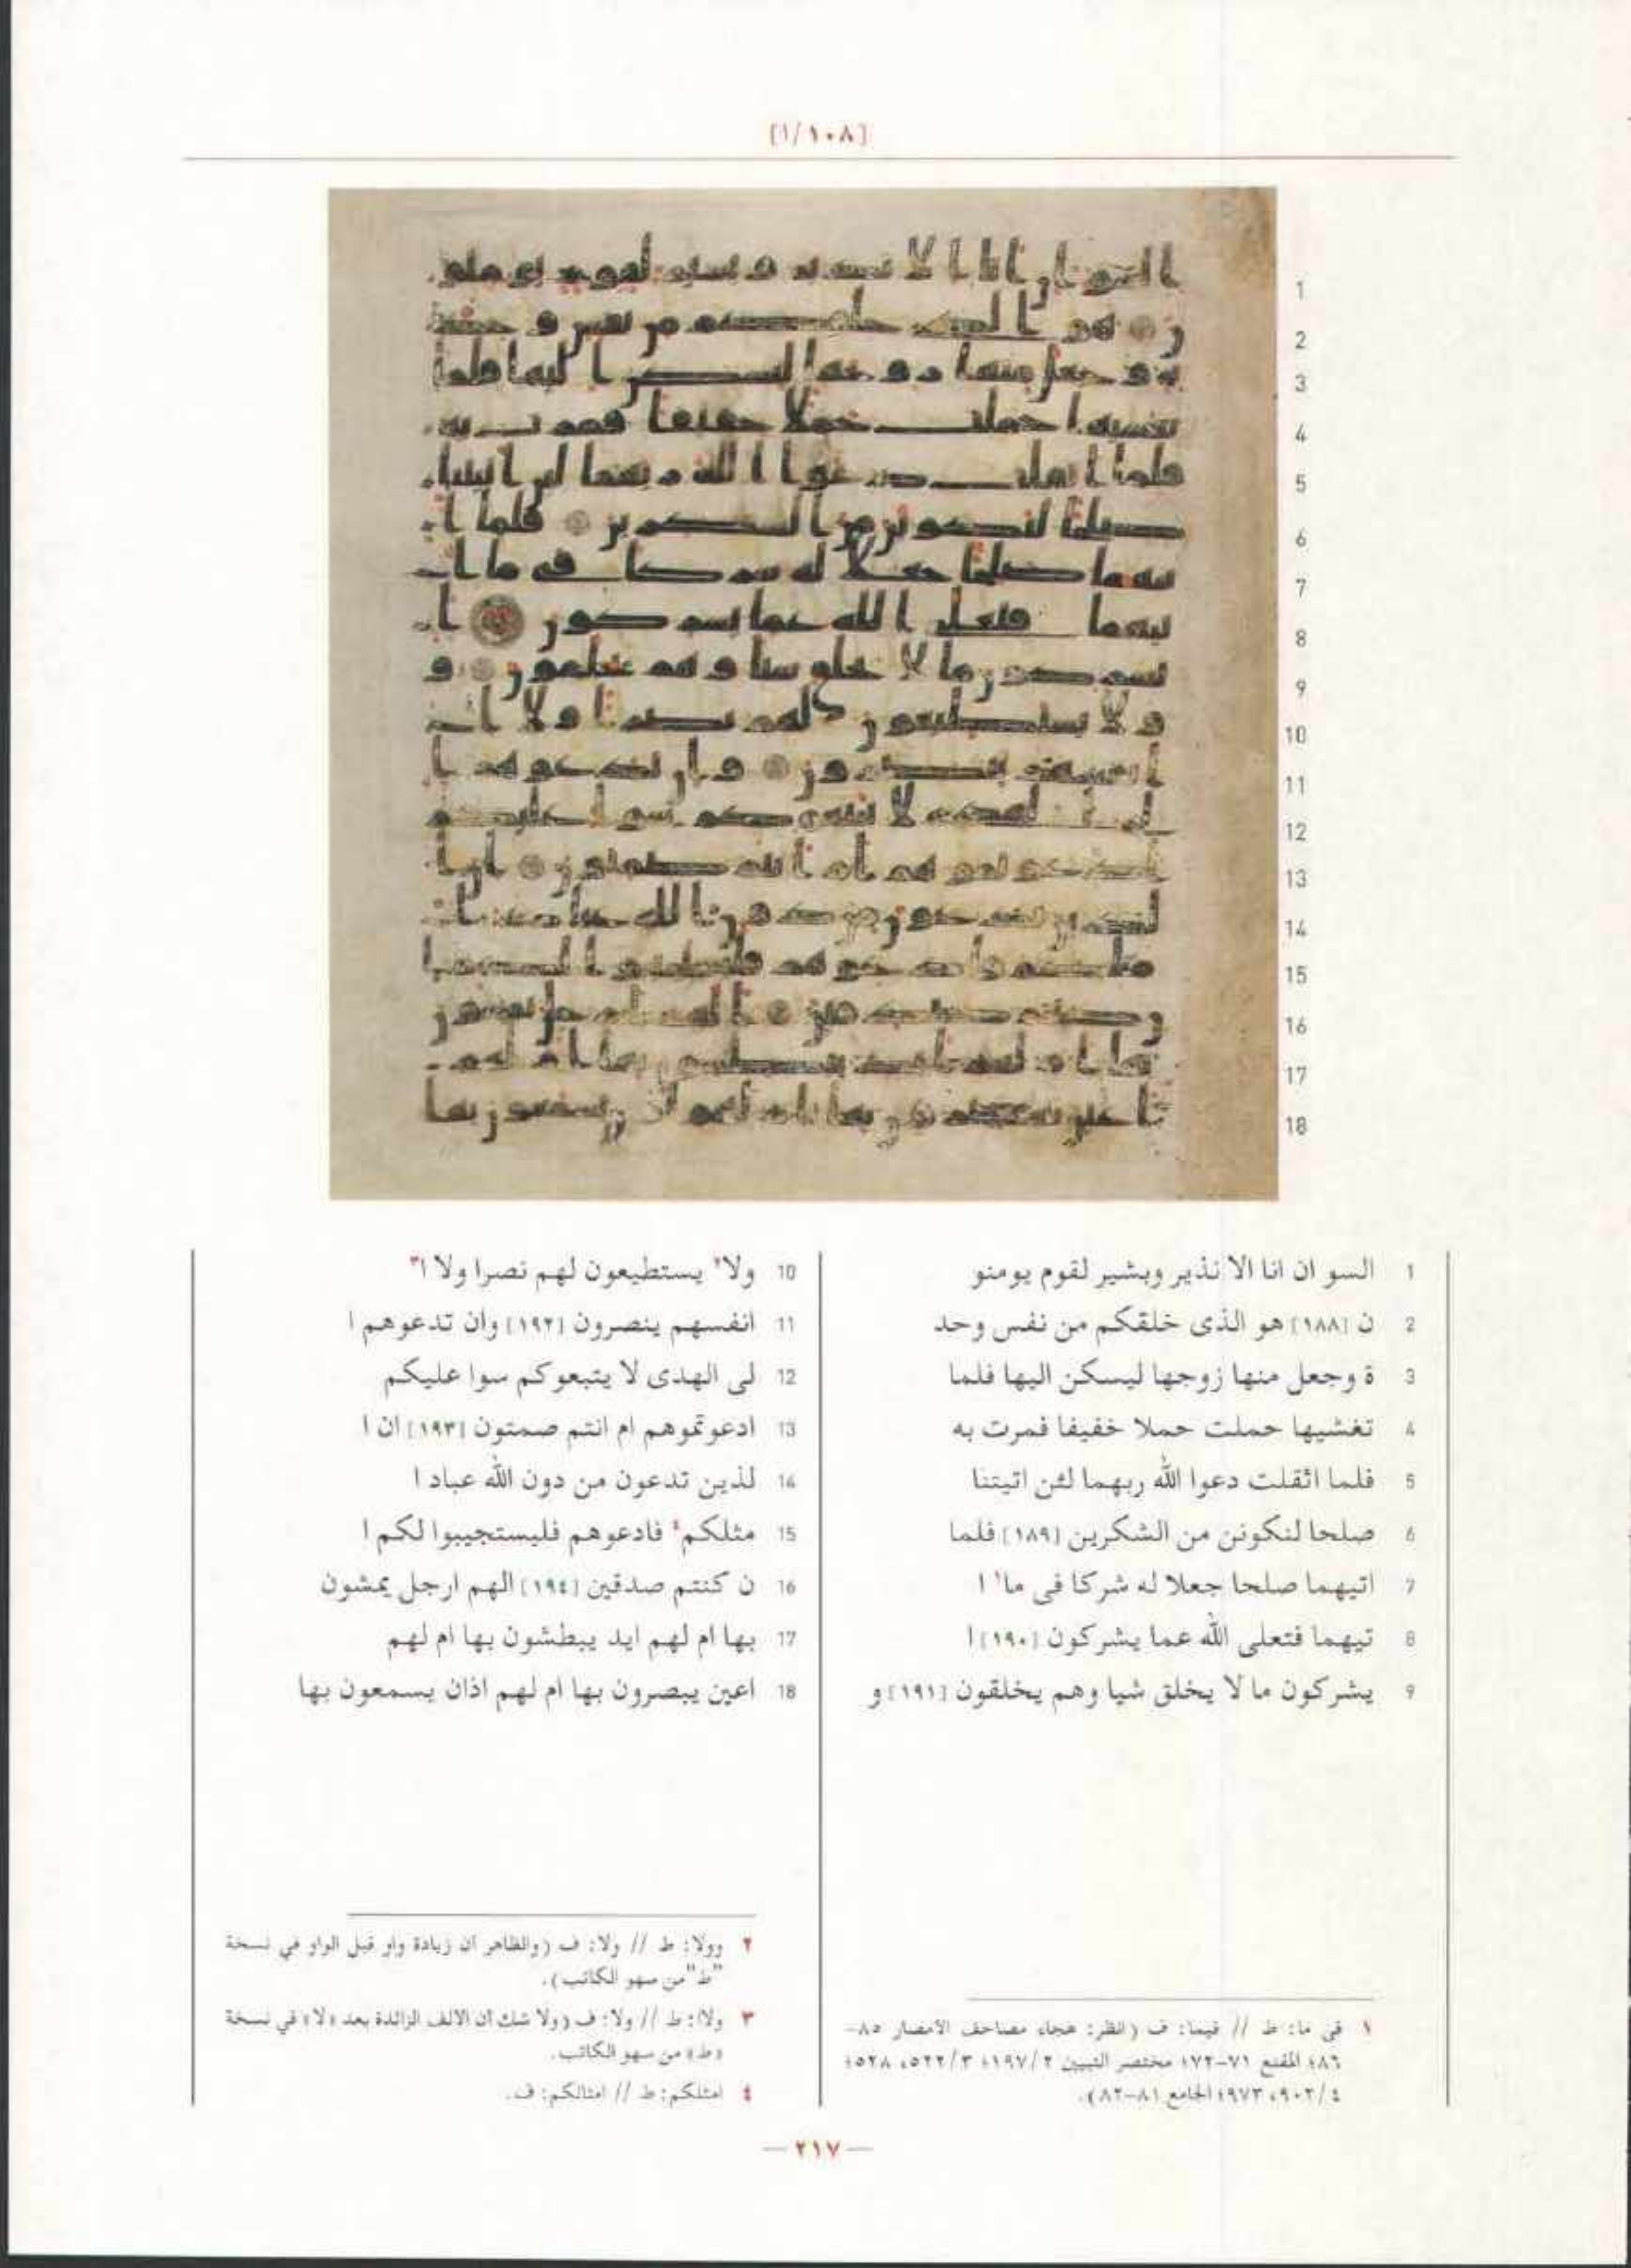 [١٠٨/١]
1 السو ان انا الا نذير وبشير لقوم يومنو
2 ن [١٨٨] هو الذى خلقكم من نفس وحد
3 ة وجعل منها زوجها ليسكن اليها فلما
4 تغشيها حملت حملا خفيفا فمرت به
5 فلما اثقلت دعوا الله ربهما لئن اتيتنا
6 صلحا لنكونن من الشكرين [١٨٩] فلما
7 اتيهما صلحا جعلا له شركا فى ما١ ا
8 تيهما فتعلى الله عما يشركون [١٩٠] ا
9 يشركون ما لا يخلق شيا وهم يخلقون [١٩١] و
10 ولا٢ يستطيعون لهم نصرا ولا ا٣
11 انفسهم ينصرون [١٩٢] وان تدعوهم ا
12 لى الهدى لا يتبعوكم سوا عليكم
13 ادعوتموهم ام انتم صمتون [١٩٣] ان ا
14 لذين تدعون من دون الله عباد ا
15 مثلكم٤ فادعوهم فليستجيبوا لكم ا
16 ن كنتم صدقين [١٩٤] الهم ارجل يمشون
17 بها ام لهم ايد يبطشون بها ام لهم
18 اعين يبصرون بها ام لهم اذان يسمعون بها
١ فى ما: ط // فيما: ف (انظر: هجاء مصاحف الأمصار ٨٥-
٨٦؛ المقنع ٧١-٧٢؛ مختصر التبيين ١٩٧/٢؛ ٥٢٢/٣، ٥٢٨؛
٩٠٢/٤، ٩٧٣؛ الجامع ٨١-٨٢).
٢ وولا: ط // ولا: ف (والظاهر أن زيادة واو قبل الواو في نسخة
"ط" من سهو الكاتب).
٣ ولاا: ط // ولا: ف (ولا شك أن الألف الزائدة بعد «لا» في نسخة
«ط» من سهو الكاتب.
٤ امثلكم: ط // امثالكم: ف.
— ٢١٧ —